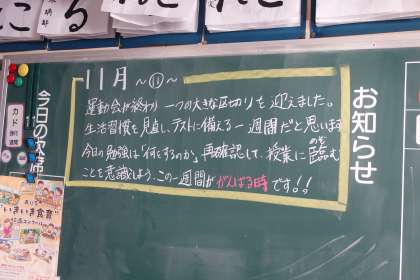 お知らせ
11月 ~⑪~
運動会が終わり一つの大きな区切りを迎えました。
生活習慣を見直し、テストに備える一週間だと思います
今日の勉強は「何をするのか」再確認して、授業に臨む
のぞ
ことを意識しよう。この一週間ががんばる時です!!
今日の欠席
カド
"いきいき食育"